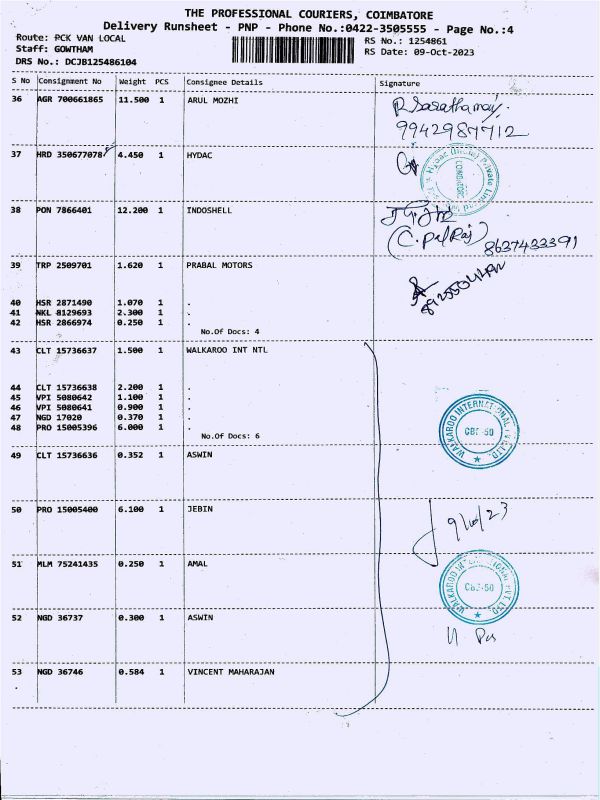 THE PROFESSIONAL COURIERS, COIMBATORE
Delivery Runsheet - PNP - Phone No.:0422-3505555 - Page No.:4
Route: PCK VAN LOCAL
RS No.: 1254861
Staff: GOWTHAM
RS Date: 09-Oct-2023
DRS No.: DCJB125486104
S No Consignment No Weight PCS Consignee Details Signature
36 AGR 700661865 11.500 1 ARUL MOZHI
9942987712
37 HRD 350677078 4.450 1 HYDAC
38 PON 7866401 12.200 1 INDOSHELL
8637433391
39 TRP 2509701 1.620 1 PRABAL MOTORS
40 HSR 2871490 1.070 1 .
41 NKL 8129693 2.300 1 .
42 HSR 2866974 0.250 1 .
No.Of Docs: 4
43 CLT 15736637 1.500 1 WALKAROO INT NTL
44 CLT 15736638 2.200 1 .
45 VPI 5080642 1.100 1 .
46 VPI 5080641 0.900 1 .
47 NGD 17020 0.370 1 .
48 PRO 15005396 6.000 1 .
No.Of Docs: 6
WALKAROO INTERNATIONAL PVT. LTD.
CBE-50
49 CLT 15736636 0.352 1 ASWIN
50 PRO 15005400 6.100 1 JEBIN
9/10/23
51 MLM 75241435 0.250 1 AMAL
WALKAROO INTERNATIONAL PVT. LTD.
CBE-50
52 NGD 36737 0.300 1 ASWIN
11 Pcs
53 NGD 36746 0.584 1 VINCENT MAHARAJAN